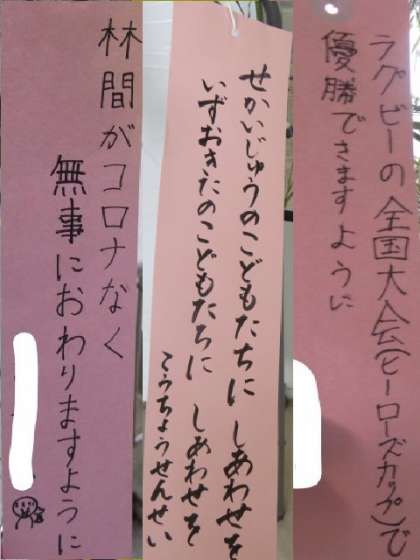 林間がコロナなく
無事におわりますように
せかいじゅうのこどもたちに しあわせを
いずおきたのこどもたちに しあわせを
こうちょうせんせい
ラグビーの全国大会(ヒーローズカップ)で
優勝できますように